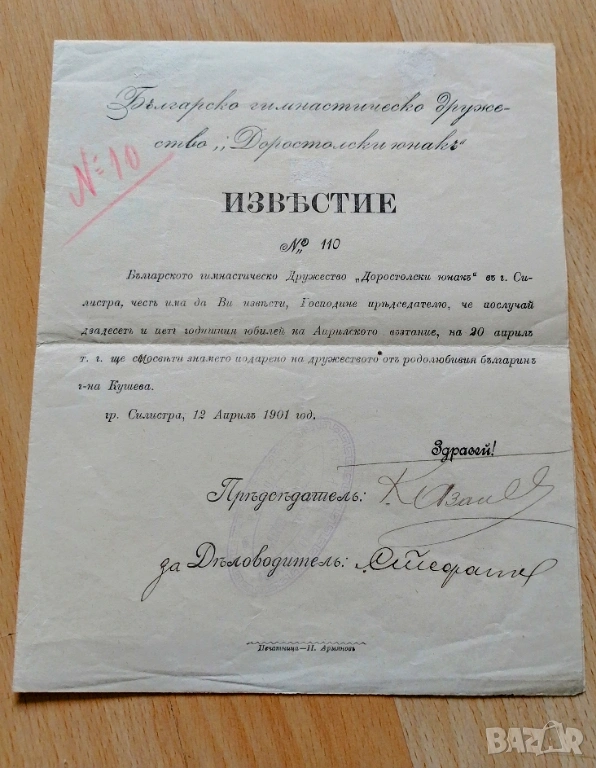 Българско гимнастическо друже-
ство „Доростолски юнакъ“
№ 10
ИЗВѢСТИЕ
№ 110
Българското гимнастическо Дружество „Доростолски юнакъ“ въ г. Си-
листра, честь има да Ви извѣсти, Господине прѣдседателю, че послучай
двадесеть и петь годишния юбилей на Априлското възтание, на 20 априлъ
т. г. ще се освѣти знамето подарено на дружеството отъ родолюбивия българинъ
г-на Кушева.
гр. Силистра, 12 Априлъ 1901 год.
Здравѣй!
Прѣдсѣдатель:
за Дѣловодитель:
Печатница—П.
BAZAR